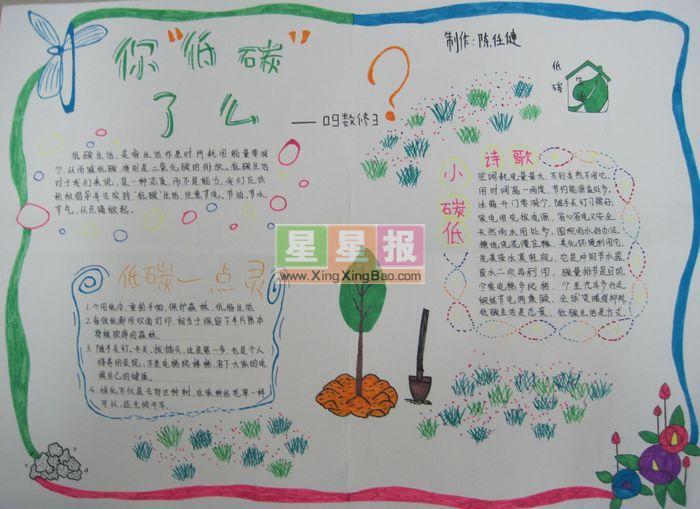 你“低碳”
了么?
——09数修3
制作:陈任健
低碳
生活
低碳生活,是指生活作息时所耗用能量要减
少,从而减低碳,特别是二氧化碳的排放。低碳生活
对于我们来说,是一种态度,而不是能力,我们应该
积极倡导并去实践“低碳”生活,注意节电、节油、节水、
节气,从点滴做起。
低碳一点灵
1.少用纸巾,重拾手帕,保护森林,低碳生活
2.每张纸都用双面打印,相当于保留下半片原本
将被砍掉的森林。
3.随手关灯、开关、拔插头,这是第一步,也是个人
修养的表现;不坐电梯爬楼梯,省下大家的电
换自己的健康。
4.绿化不仅是去郊区种树,在家种些花草一样
可以,还无须开车。
小碳低
诗歌
空调耗电量最大,不到炎热不用它,
用时调高一两度,节约能源益处多。
冰箱开门要减少,随手关灯习惯好,
家电用完拔电源,省心省电又安全。
天然雨水用处多,
洗澡接水
废水二次再利用,碳量排节是目的
少乘电梯多爬梯,少坐汽车多行走
低碳生活是态度,低碳生活是方式
星星报
www.XingXingBao.com